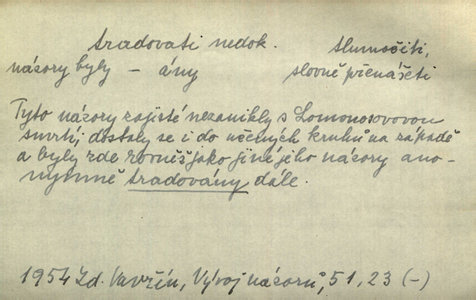 tradovati nedok. tlumočiti,
názory byly – ány slovně přenášeti
Tyto názory zajisté nezanikly s Lomonosovovou
smrtí; dostaly se i do učených kruhů na západě
a byly zde rovněž jako jiné jeho názory ano-
nymně tradovány dále.
1954 Zd. Vavřín, Vývoj názorů, 51, 23 (–)